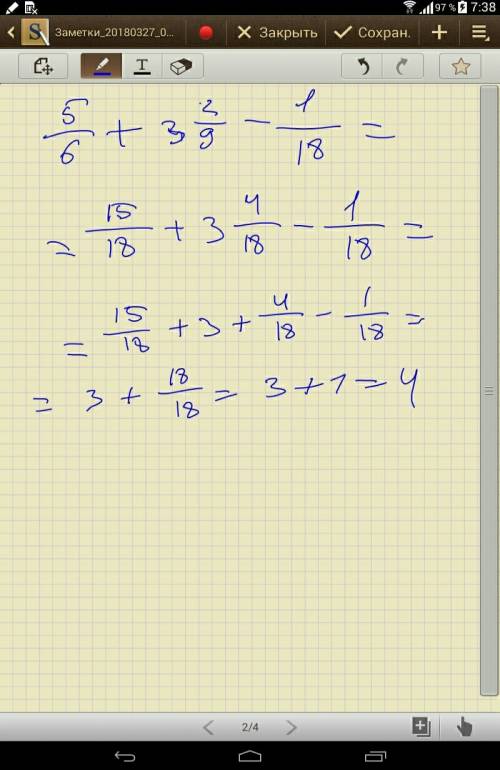 97 % 7:38
Заметки_20180327_0... Закрыть Сохран.
T
5/6 + 3 2/9 - 1/18 =
= 15/18 + 3 4/18 - 1/18 =
= 15/18 + 3 + 4/18 - 1/18 =
= 3 + 18/18 = 3 + 1 = 4
2/4